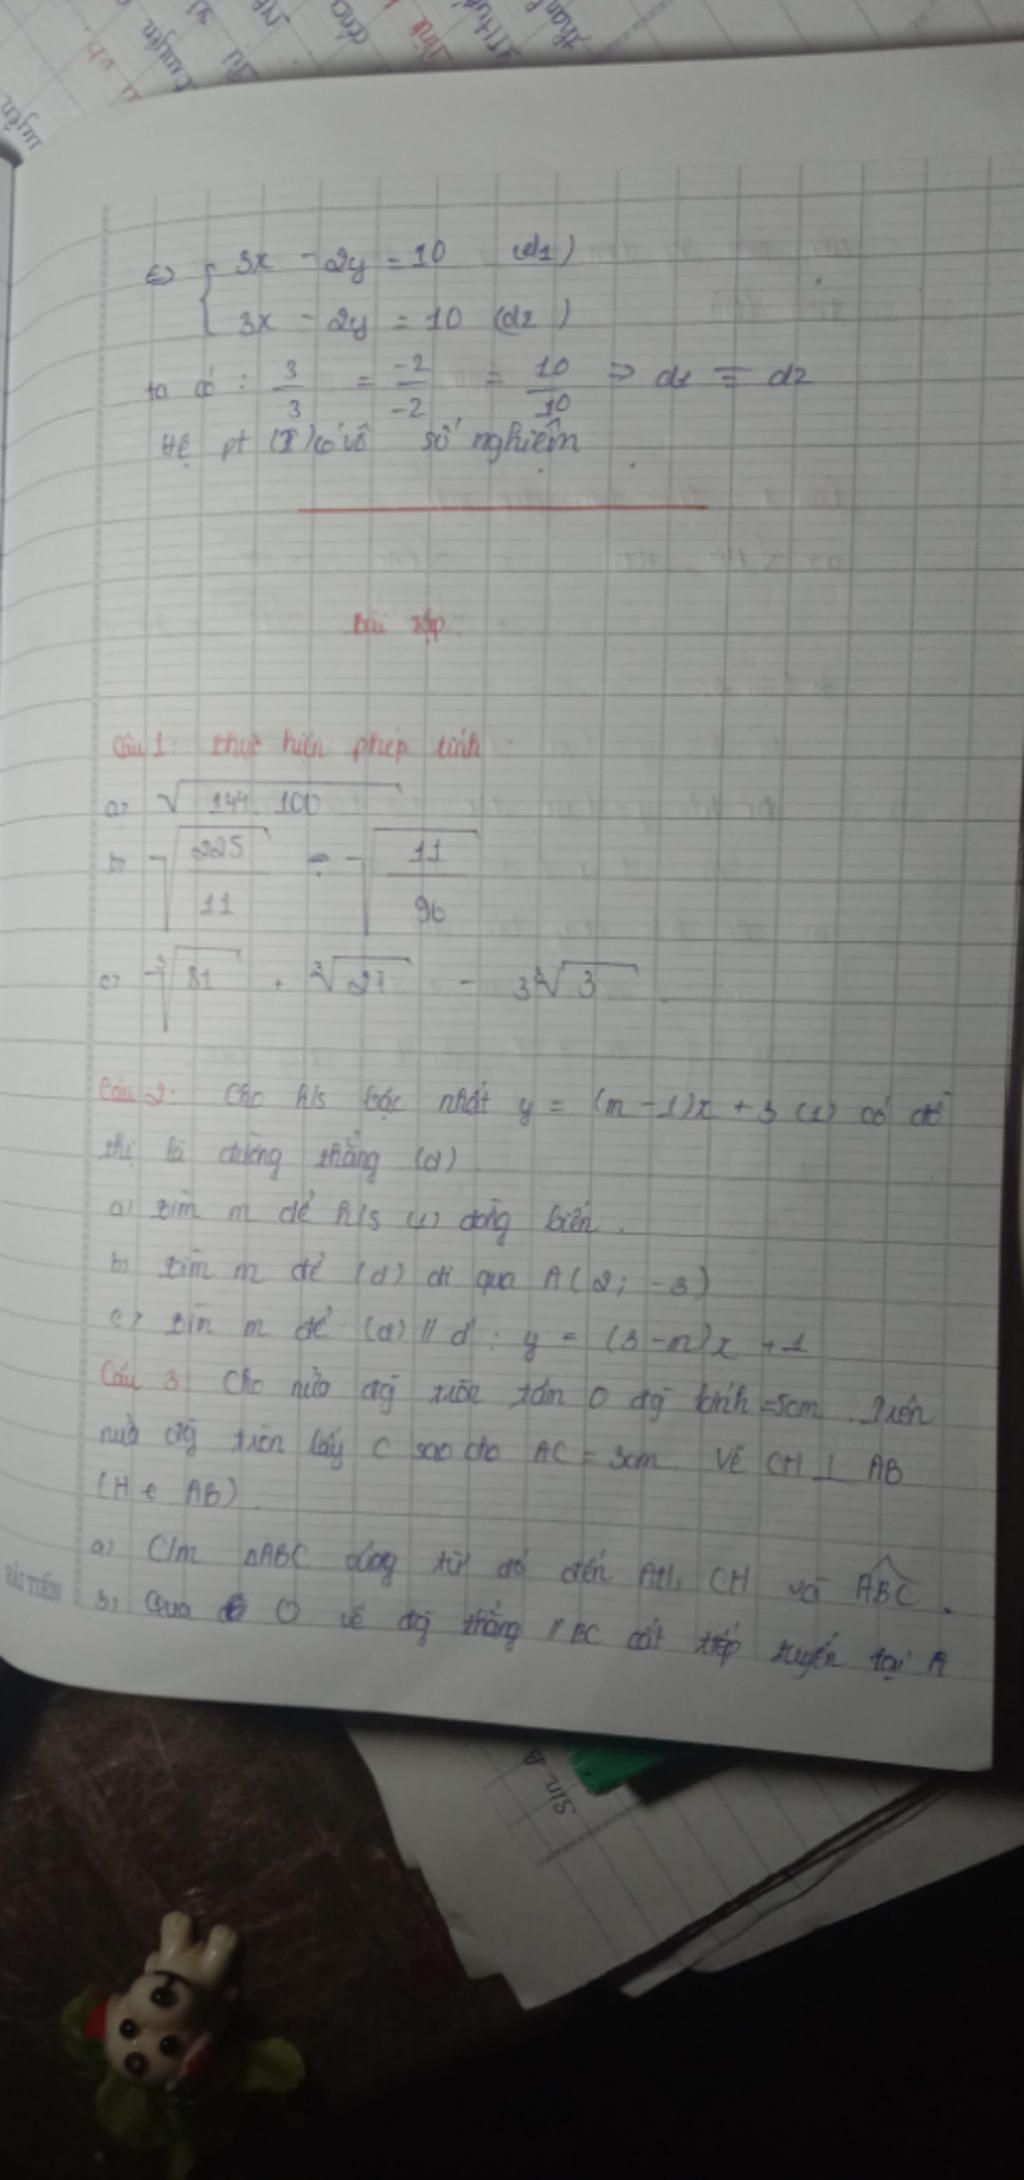 ⇔ { 3x - 2y = 10 (d1)
3x - 2y = 10 (d2)
ta có : 3/3 = -2/-2 = 10/10 => d1 ≡ d2
Hệ pt (I) có vô số nghiệm
Bài tập
Câu 1: thực hiện phép tính
a, √144.100
b, √225/11 : √11/96
c, ³√81 . ³√27 - 3³√3
Câu 2: Cho h/s bậc nhất y = (m - 1)x + 3 (1) có đồ
thị là đường thẳng (d)
a, tìm m để h/s (1) đồng biến.
b, tìm m để (d) đi qua A(2; -3)
c, tìm m để (d) // d' : y = (3 - m)x + 1
Câu 3 Cho nửa đg tròn tâm O đg kính = 5cm. Trên
nửa đg tròn lấy C sao cho AC = 3cm Vẽ CH ⊥ AB
(H ∈ AB)
a, C/m ΔABC vuông từ đó AH, CH và ABC.
b, Qua O vẽ đg thẳng // BC cắt tiếp tuyến tại A
HẢI TIẾN
sin B